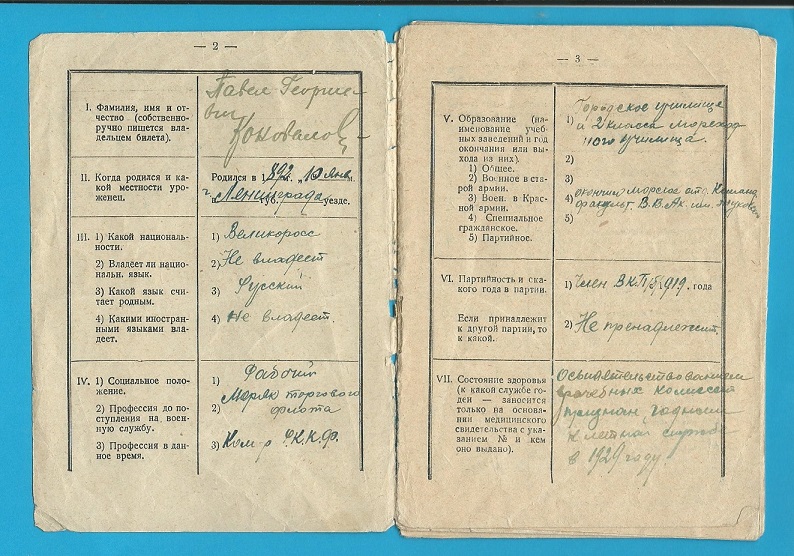 — 2 —
I. Фамилия, имя и от-
чество (собственно-
ручно пишется вла-
дельцем билета).
Павел Георгие-
вич
Коновалов
II. Когда родился и ка-
кой местности уро-
женец.
Родился в 1892 г. „10 Янв н.
г. Ленинграда уб. уезде.
III. 1) Какой националь-
ности.
1) Великоросс
2) Владеет ли нацио-
нальн. язык.
2) Не владеет
3) Какой язык счи-
тает родным.
3) Русский
4) Какими иностран-
ными языками вла-
деет.
4) Не владеет.
IV. 1) Социальное поло-
жение.
1) Рабочий
2) Профессия до по-
ступления на воен-
ную службу.
2) Моряк торгового
флота
3) Профессия в дан-
ное время.
3) Ком-р Р.К.К.Ф.
— 3 —
V. Образование (на-
именование учеб-
ных заведений и год
окончания или выхо-
да из них).
1) Общее.
2) Военное в ста-
рой армии.
3) Воен. в Крас-
ной армии.
4) Специальное
гражданское.
5) Партийное.
1) Городское училище
и 2 класса мореход
ного училища.
2)
3)
4) окончил морское отд. Команд
факульт. В.В.Ак. им.
5)
VI. Партийность и с ка-
кого года в партии.
1) Член ВКП/б 1919. года
Если принадлежит
к другой партии, то
к какой.
2) Не пренадлежит.
VII. Состояние здоровья
(к какой службе го-
ден — заносится
только на основа-
нии медицинского
свидетельства с ука-
занием № и кем
оно выдано).
Освидетельствованием
врачебных комиссий
признан годным
к летной службе
в 1929 году.